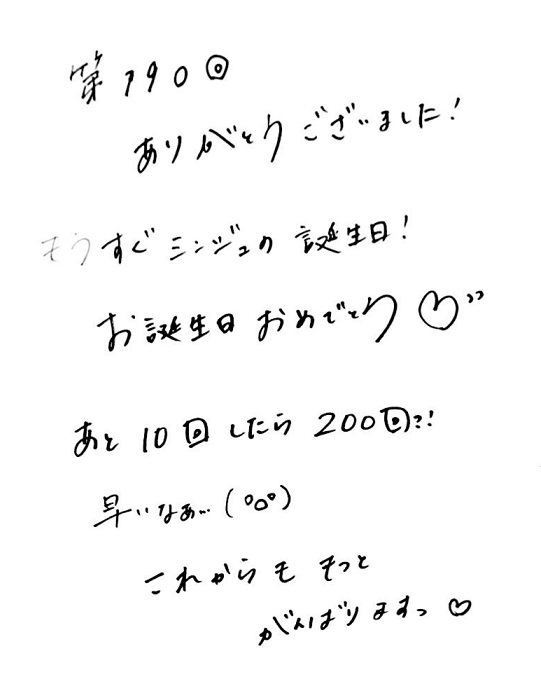 第190回
ありがとうございました！
もうすぐミンジュの誕生日！
お誕生日おめでとう♡”
あと10回したら200回?!
早いなぁ…(°o°)
これからももっと
がんばりますっ♡